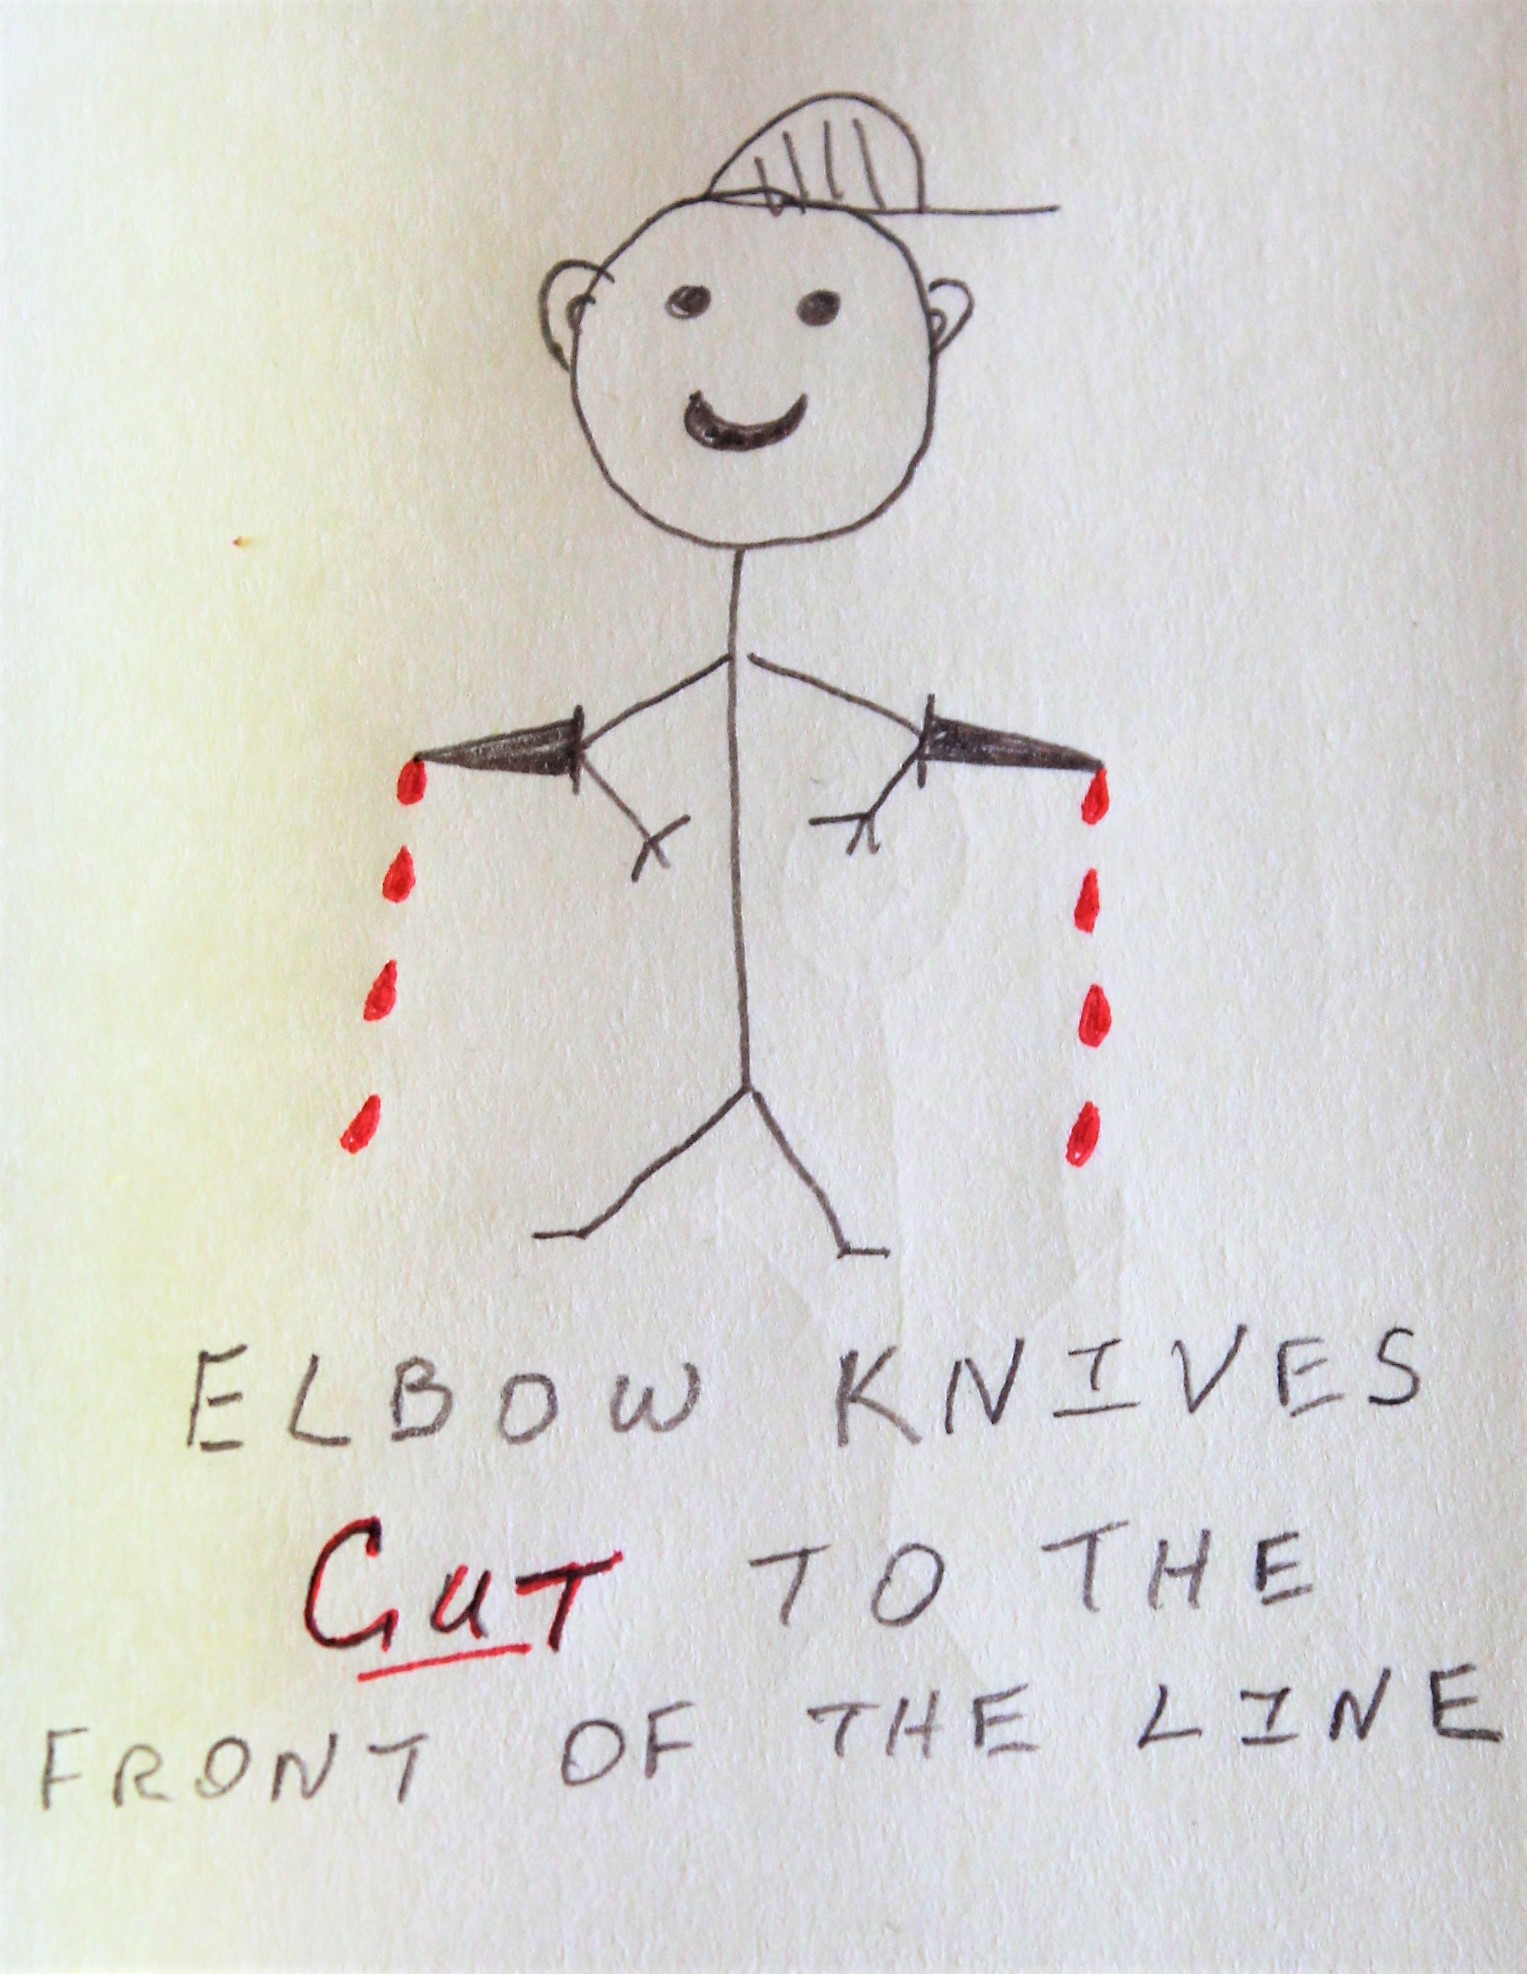 ELBOW KNIVES
CUT TO THE
FRONT OF THE LINE